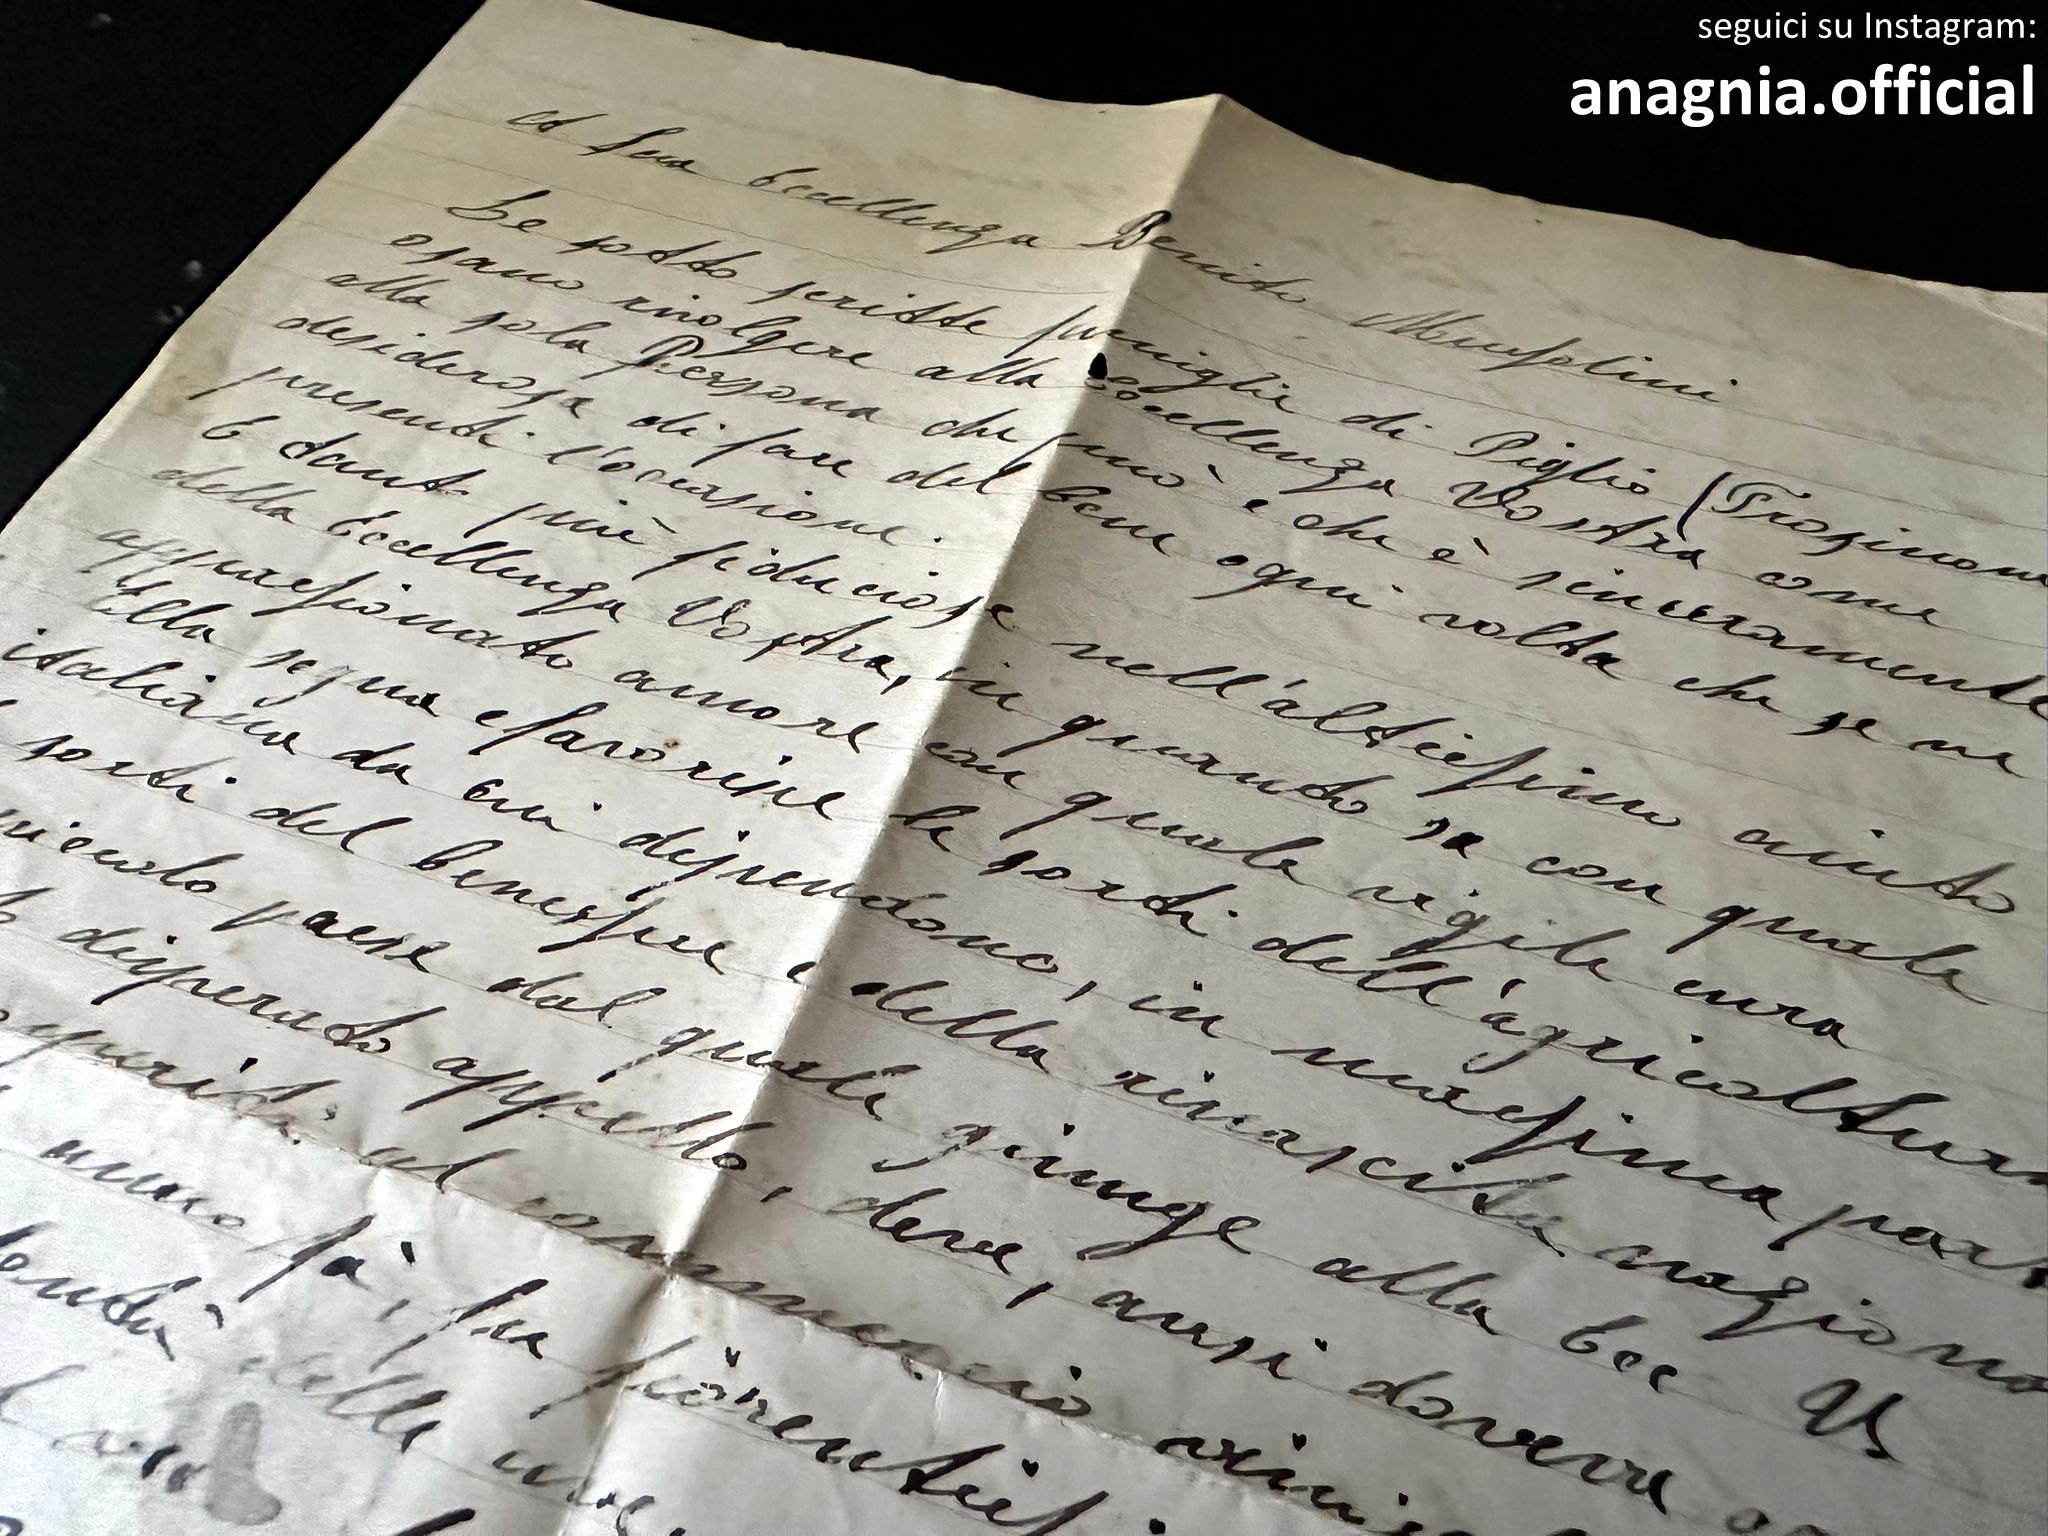 seguici su Instagram:
anagnia.official
A Sua Eccellenza Benito Mussolini
Le sotto scritte famiglie di Piglio (Frosinone
osano rivolgere alla Eccellenza Vostra come
alla sola Persona che può e che è sinceramente
desiderosa di fare del bene ogni volta che se ne
presenti l'occasione.
E tanto più fiduciose nell'altissimo aiuto
della Eccellenza Vostra, in quanto sa con quale
appassionato amore con quale vigile cura
Ella segua e favorisce le sorti dell'agricoltura
italiana da cui dipendono, in massima part
sorti del benessere e della rinascita naziona
piccolo paese dal quale giunge alla Ecc V
disperato appello, deve, anzi doveva
al commercio
anno fà, fu
nelle